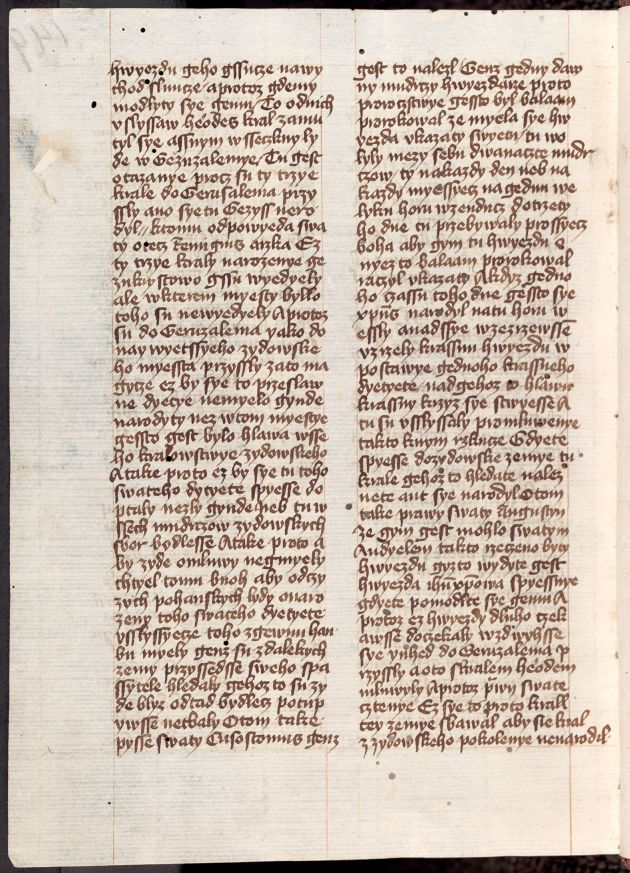 hwyezdu geho gssucze nawy
chod sluncze / aprotoz gdemy
modlyty sye gemu / To odnich
vslyssaw heodes kral zamu
tyl sye assnym wsseczkny ly
de w Gezuzalemye / Tu gest
otazanye procz su ty trzye
krale do Gerusalema przy
ssly ano sye tu Gezyss nero
dyl / ktomu odpowyeda swa
ty otecz Remigius arzka Ez
ty trzye kraly narozenye ge
zukrystowo gssu wyedyely
ale wkterem myesty byllo
toho su newyedyely Aprotoz
su do Geruzalema yako do
nay wyetssyeho zydowske
ho myessta przyssly zato ma
gycze ez by sye to przeslaw
ne dyetye nemyelo gynde
narodyty nez wtom myestye
gessto gest bylo hlawa wsse
ho kralowstwye zydowskeho
Atake proto ez by sye tu toho
swateho dytyete spyesse do
ptaly nezly gynde neb tu w
ssech mudrzow zydowskych
sbor bydlesse Atake proto a
by zyde omluwy negmyely
chtyel tomu buoh aby odzy
zych pohanskych lydy onaro
zeny toho swateho dyetyete
vsslyssyecze toho zgewnu han
bu myely genz su zdalekych
zemy przyssedsse sweho spa
ssytele hledaly gehoz to su zy
de blyz odtad bydlecz potup
vwsse netbaly Otom take
pysse swaty Crisostomus genz
gest to nalezl Genz gedny daw
ny mudrzy hwyezdarze proto
proroczstwye gessto byl balaam
prorokowal ze myela sye hw
yezda vkazaty swyetu / tu wo
lyly mezy sebu dwanaczte mudr
czow ty nakazdy den neb na
kazdy myessyecz na gednu we
lyku horu wzenducz dotrzety
ho dne tu przebywaly prossyecz
boha aby gym tu hwyezdu o
nyez to balaam prorokowal
raczyl vkazaty Akdyz gedno
ho czassu toho dne gessto sye
xpus narodyl natu horu w
essly anadssye wzezrzewsse
vzrzely krassnu hwyezdu w
postawye gednoho krassneho
dyetyete / nad gehoz to hlawu
krassny krzyz sye stwyesse A
tu su vsslyssaly promluwenye
takto knym rzkucze Gdyete
spyesse dozydowske zemye tu
krale gehoz to hledate nalez
nete ant sye narodyl Otom
take prawy swaty Augustyn
ze gym gest mohlo swatym
Andyelem takto rzeczeno byty
hwyezdu gyzto wydyte gest
hwyezda ihuxpowa spyessnye
gdyete pomodlte sye gemu A
protoz ez hwyezdy dluho czek
awsse doczekaly wzdwyhsse
sye vnhed do Geruzalema p
rzyssly aoto skralem heodem
mluwyly Aprotoz prwy swate
cztenye Ez sye to proto krall
tey zemye sbawal aby sie kral
z zydowskeho pokolenye nenarodil